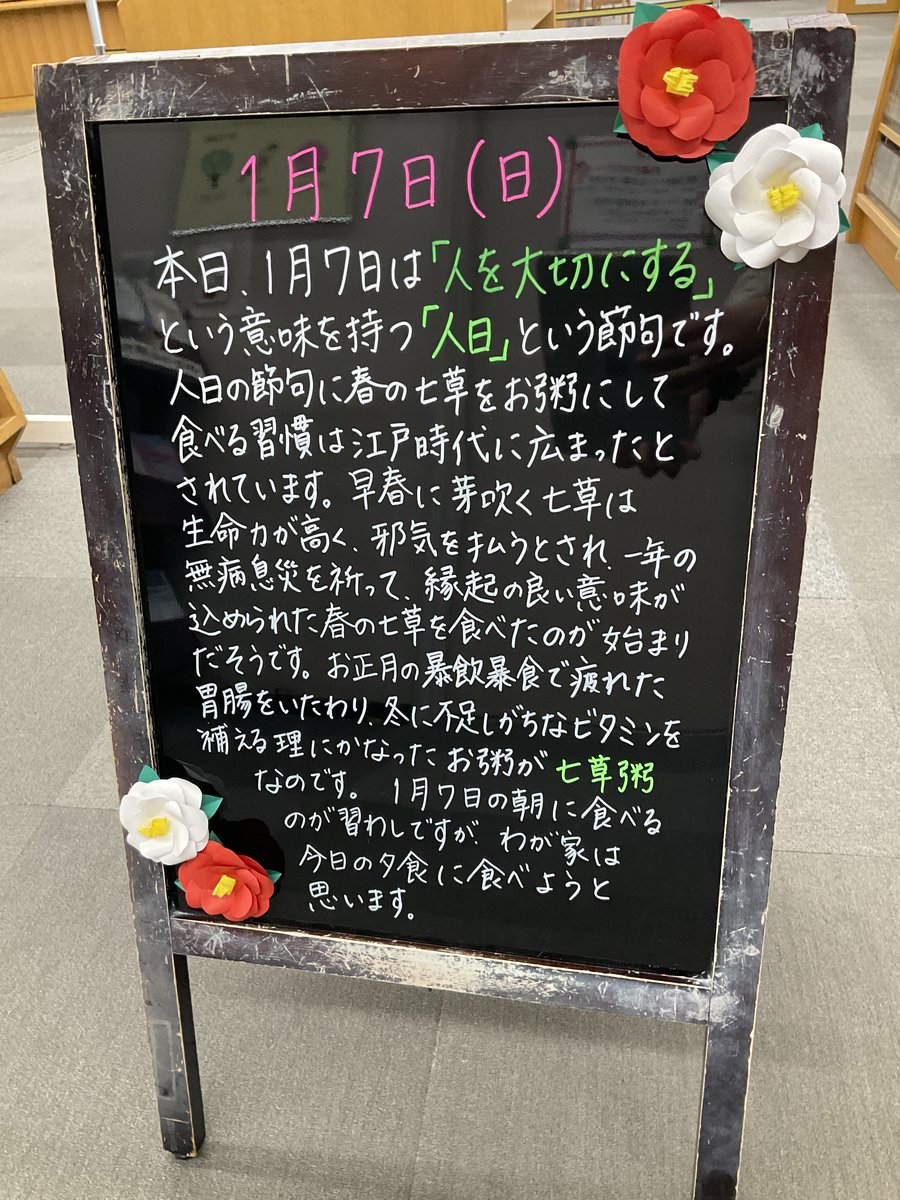 1月7日(日)
本日、1月7日は「人を大切にする」
という意味を持つ「人日」という節句です。
人日の節句に春の七草をお粥にして
食べる習慣は江戸時代に広まったと
されています。早春に芽吹く七草は
生命力が高く、邪気を払うとされ、一年の
無病息災を祈って、縁起の良い意味が
込められた春の七草を食べたのが始まり
だそうです。お正月の暴飲暴食で疲れた
胃腸をいたわり、冬に不足しがちなビタミンを
補える理にかなったお粥が七草粥
なのです。1月7日の朝に食べる
のが習わしですが、わが家は
今日の夕食に食べようと
思います。